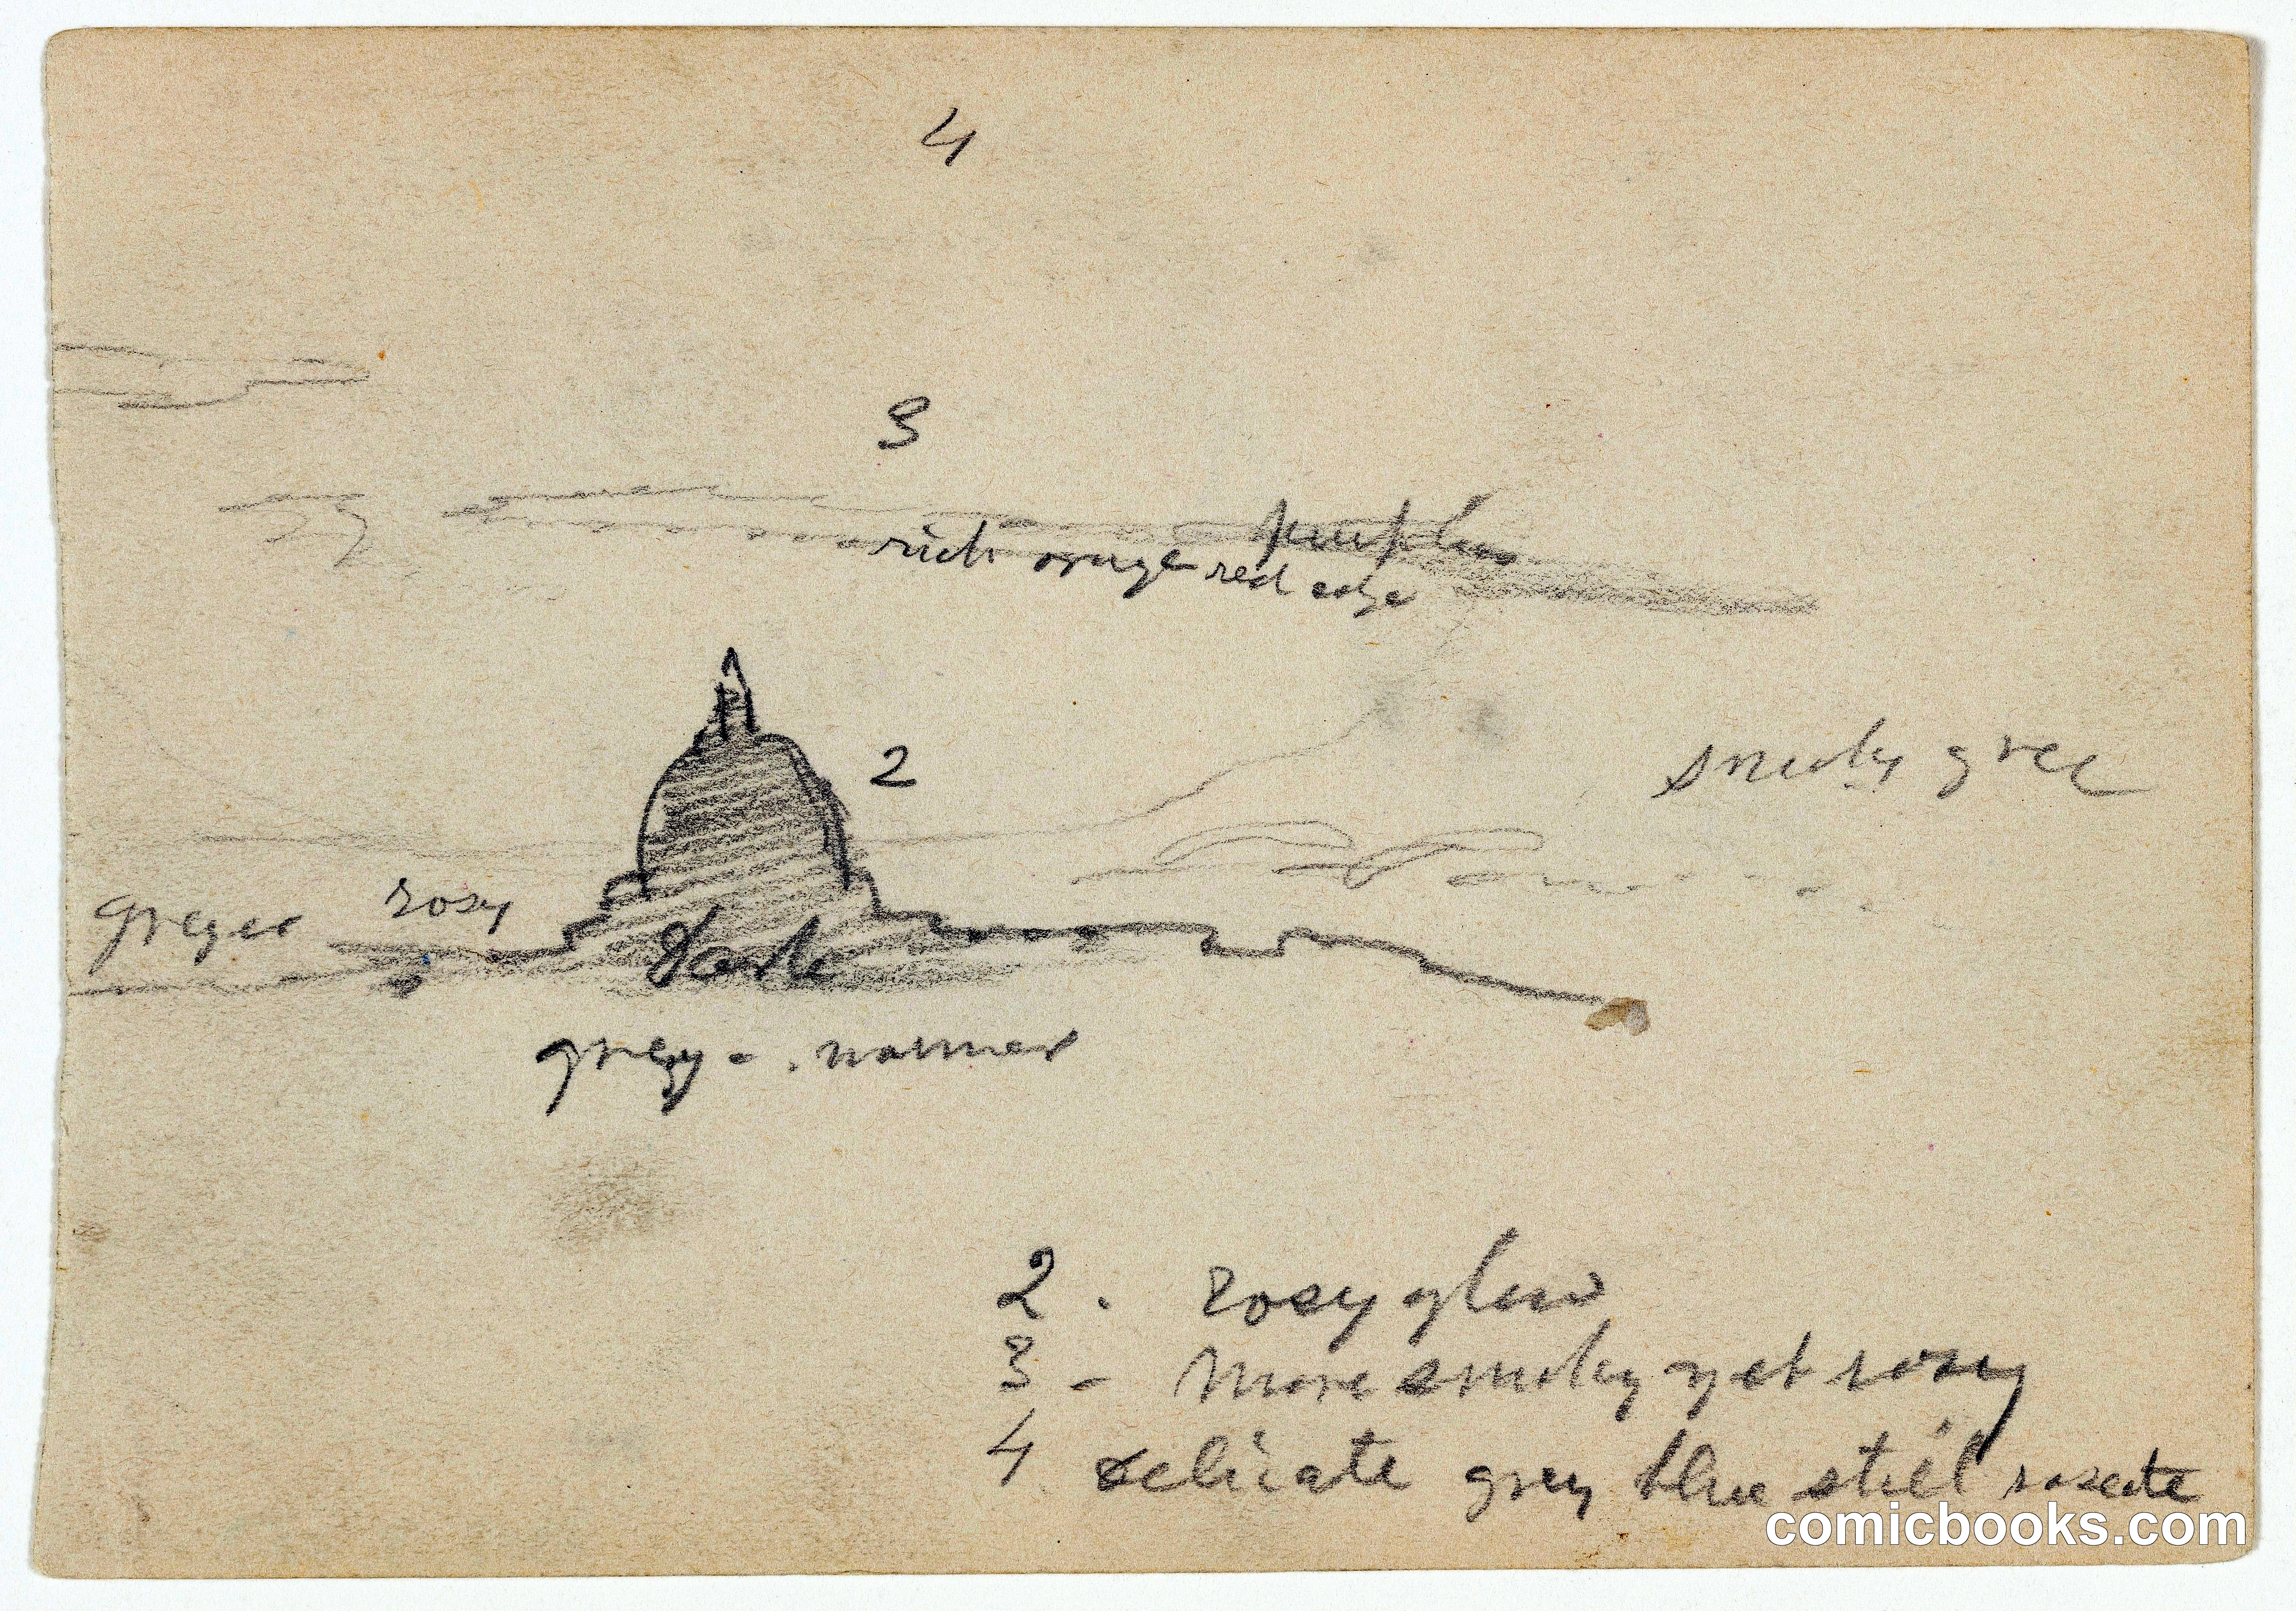 4
3
purples
rich orange red edge
2
smoky
rosy
greyer
dark
grey - . warmer
2 . rosy glow
3 - more smoky yet rosy
4 delicate grey blue still roseate
comicbooks.com